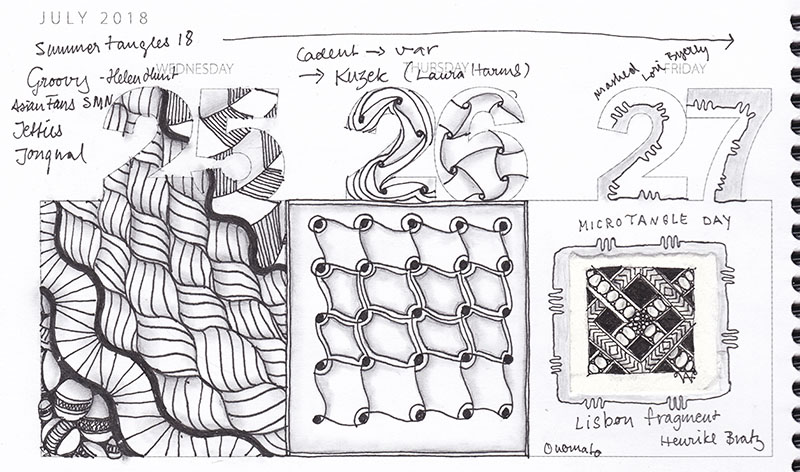 JULY 2018
Summer tangles 18
WEDNESDAY
THURSDAY
FRIDAY
Cadent → var
→ Kuzek (Laura Harms)
Groovy - Helen Hunt
Asian Fans SMN
Jetties
Jonqual
Mashed Lori Byerly
25
26
27
MICROTANGLE DAY
Lisbon fragment
Henrike Bratz
Onomato